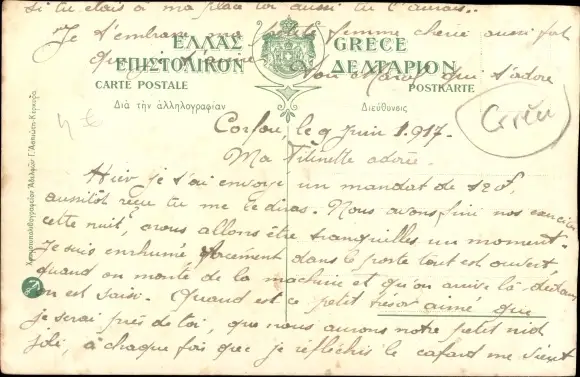 Si tu étais à ma place toi aussi tu l'aurais..
Je t'embrasse ma petite femme chérie aussi fort
que je t'aime
Ton qui t'adore
ΕΛΛΑΣ
GRECE
ΕΠΙΣΤΟΛΙΚΟΝ
ΔΕΛΤΑΡΙΟΝ
CARTE POSTALE
POSTKARTE
Διὰ τὴν ἀλληλογραφίαν
Διεύθυνσις
4 €
Corfou, le 9 Juin 1.917.
Ma adorée.
Hier je t'ai envoyé un mandat de 120f,
aussitôt reçu tu me le diras. Nous avons fini nos exercices
cette nuit, nous allons être tranquilles un moment.
Je suis enrhumé, forcément dans le poste tout est ouvert,
quand on monte de la machine et qu'on arrive là-dedans
on est saisi. Quand est ce petit trésor aimé que
je serai près de toi, que nous aurons notre petit nid
joli, à chaque fois que je réfléchis le cafard me vient